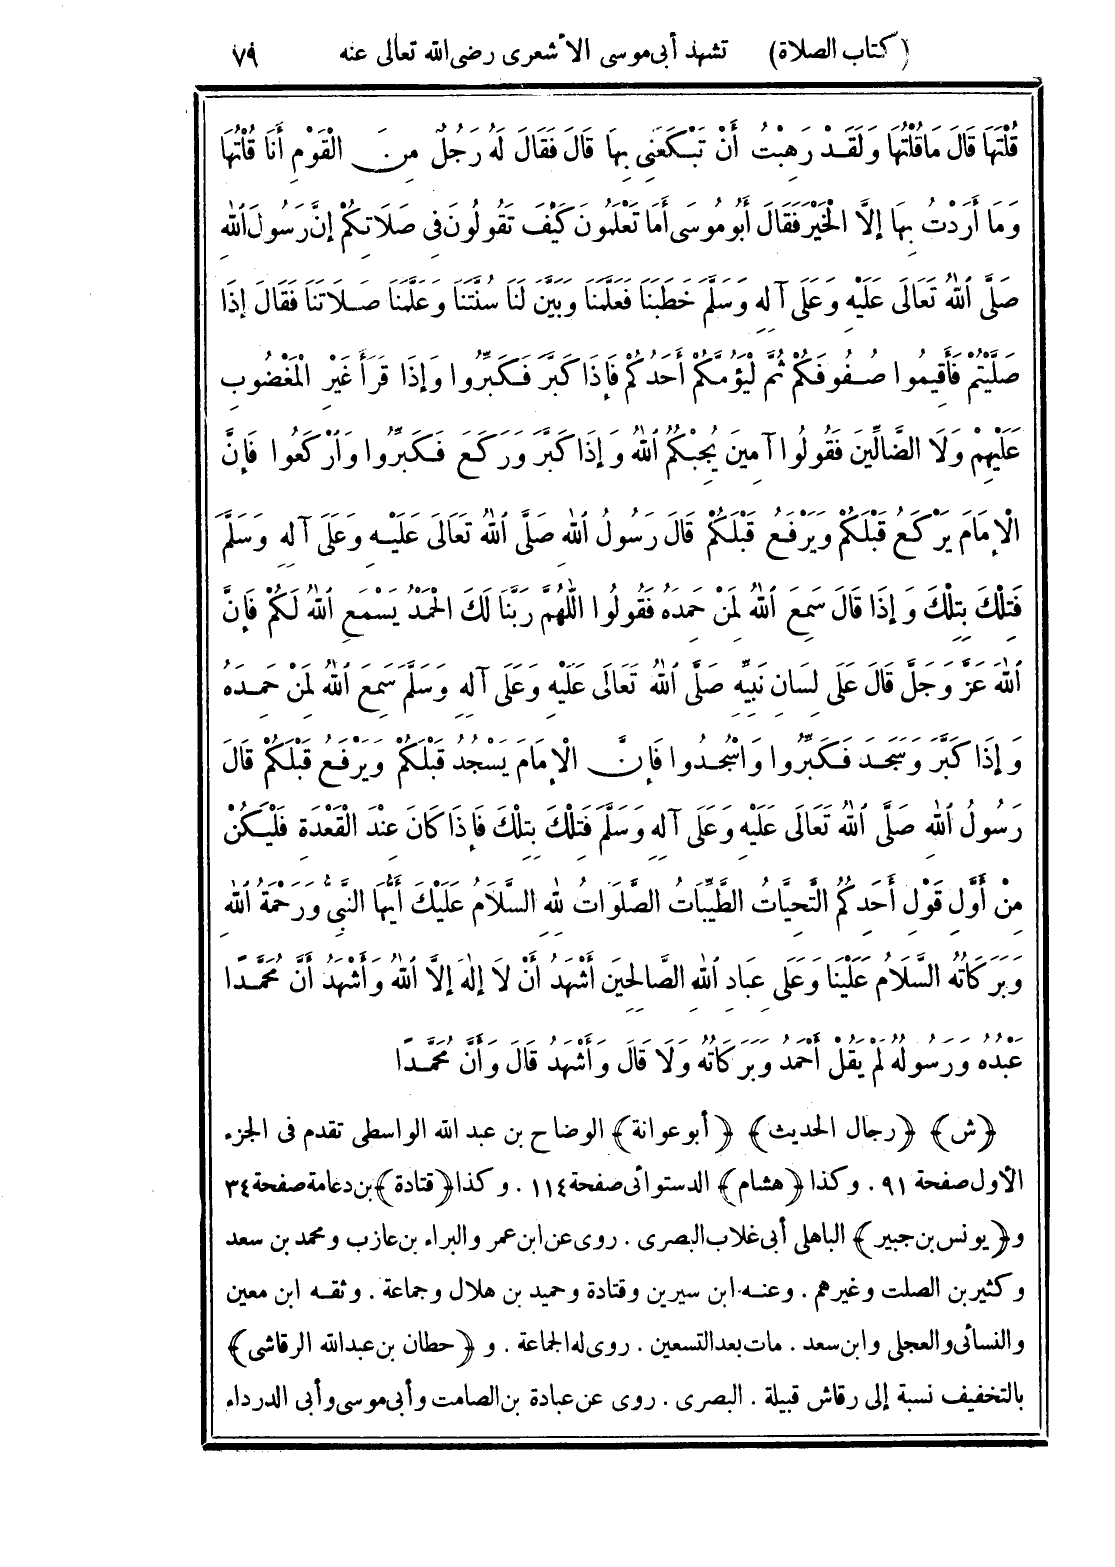 (كتاب الصلاة) تشهد أبى موسى الأشعرى رضى الله تعالى عنه ٧٩
قُلْتَهَا قَالَ مَاقُلْتُهَا وَلَقَدْ رَهِبْتُ أَنْ تَبْكَعَنِى بِهَا قَالَ فَقَالَ لَهُ رَجُلٌ مِنَ الْقَوْمِ أَنَا قُلْتُهَا
وَمَا أَرَدْتُ بِهَا إلَّا الْخَيْرَ فَقَالَ أَبُو مُوسَى أَمَا تَعْلَمُونَ كَيْفَ تَقُولُونَ فِى صَلَاتِكُمْ إنَّ رَسُولَ اللهِ
صَلَّى اللهُ تَعَالَى عَلَيْهِ وَعَلَى آلِهِ وَسَلَّمَ خَطَبَنَا فَعَلَّمَنَا وَبَيَّنَ لَنَا سُنَّتَنَا وَعَلَّمَنَا صَلَاتَنَا فَقَالَ إذَا
صَلَّيْتُمْ فَأَقِيمُوا صُفُوفَكُمْ ثُمَّ لْيَؤُمَّكُمْ أَحَدُكُمْ فَإذَا كَبَّرَ فَكَبِّرُوا وَإذَا قَرَأَ غَيْرِ الْمَغْضُوبِ
عَلَيْهِمْ وَلَا الضَّالِّينَ فَقُولُوا آمِينَ يُجِبْكُمُ اللهُ وَإذَا كَبَّرَ وَرَكَعَ فَكَبِّرُوا وَارْكَعُوا فَإنَّ
الْإمَامَ يَرْكَعُ قَبْلَكُمْ وَيَرْفَعُ قَبْلَكُمْ قَالَ رَسُولُ اللهِ صَلَّى اللهُ تَعَالَى عَلَيْهِ وَعَلَى آلِهِ وَسَلَّمَ
فَتِلْكَ بِتِلْكَ وَإذَا قَالَ سَمِعَ اللهُ لِمَنْ حَمِدَهُ فَقُولُوا اللّٰهُمَّ رَبَّنَا لَكَ الْحَمْدُ يَسْمَعِ اللهُ لَكُمْ فَإنَّ
اللهَ عَزَّ وَجَلَّ قَالَ عَلَى لِسَانِ نَبِيِّهِ صَلَّى اللهُ تَعَالَى عَلَيْهِ وَعَلَى آلِهِ وَسَلَّمَ سَمِعَ اللهُ لِمَنْ حَمِدَهُ
وَإذَا كَبَّرَ وَسَجَدَ فَكَبِّرُوا وَاسْجُدُوا فَإنَّ الْإمَامَ يَسْجُدُ قَبْلَكُمْ وَيَرْفَعُ قَبْلَكُمْ قَالَ
رَسُولُ اللهِ صَلَّى اللهُ تَعَالَى عَلَيْهِ وَعَلَى آلِهِ وَسَلَّمَ فَتِلْكَ بِتِلْكَ فَإذَا كَانَ عِنْدَ الْقَعْدَةِ فَلْيَكُنْ
مِنْ أَوَّلِ قَوْلِ أَحَدِكُمُ التَّحِيَّاتُ الطَّيِّبَاتُ الصَّلَوَاتُ لِلهِ السَّلَامُ عَلَيْكَ أَيُّهَا النَّبِىُّ وَرَحْمَةُ اللهِ
وَبَرَكَاتُهُ السَّلَامُ عَلَيْنَا وَعَلَى عِبَادِ اللهِ الصَّالِحِينَ أَشْهَدُ أَنْ لَا إلَهَ إلَّا اللهُ وَأَشْهَدُ أَنَّ مُحَمَّدًا
عَبْدُهُ وَرَسُولُهُ لَمْ يَقُلْ أَحْمَدُ وَبَرَكَاتُهُ وَلَا قَالَ وَأَشْهَدُ قَالَ وَأَنَّ مُحَمَّدًا
﴿ش﴾ ﴿رجال الحديث﴾ ﴿أبو عوانة﴾ الوضاح بن عبد الله الواسطى تقدم فى الجزء
الأول صفحة ٩١ . وكذا ﴿هشام﴾ الدستوائى صفحة ١١٤ . وكذا ﴿قتادة﴾ بن دعامة صفحة ٣٤
و﴿يونس بن جبير﴾ الباهلى أبى غلاب البصرى . روى عن ابن عمر والبراء بن عازب ومحمد بن سعد
وكثير بن الصلت وغيرهم . وعنه ابن سيرين وقتادة وحميد بن هلال وجماعة . وثقه ابن معين
والنسائى والعجلى وابن سعد . مات بعد التسعين . روى له الجماعة . و ﴿حطان بن عبدالله الرقاشى﴾
بالتخفيف نسبة إلى رقاش قبيلة . البصرى . روى عن عبادة بن الصامت وأبى موسى وأبى الدرداء